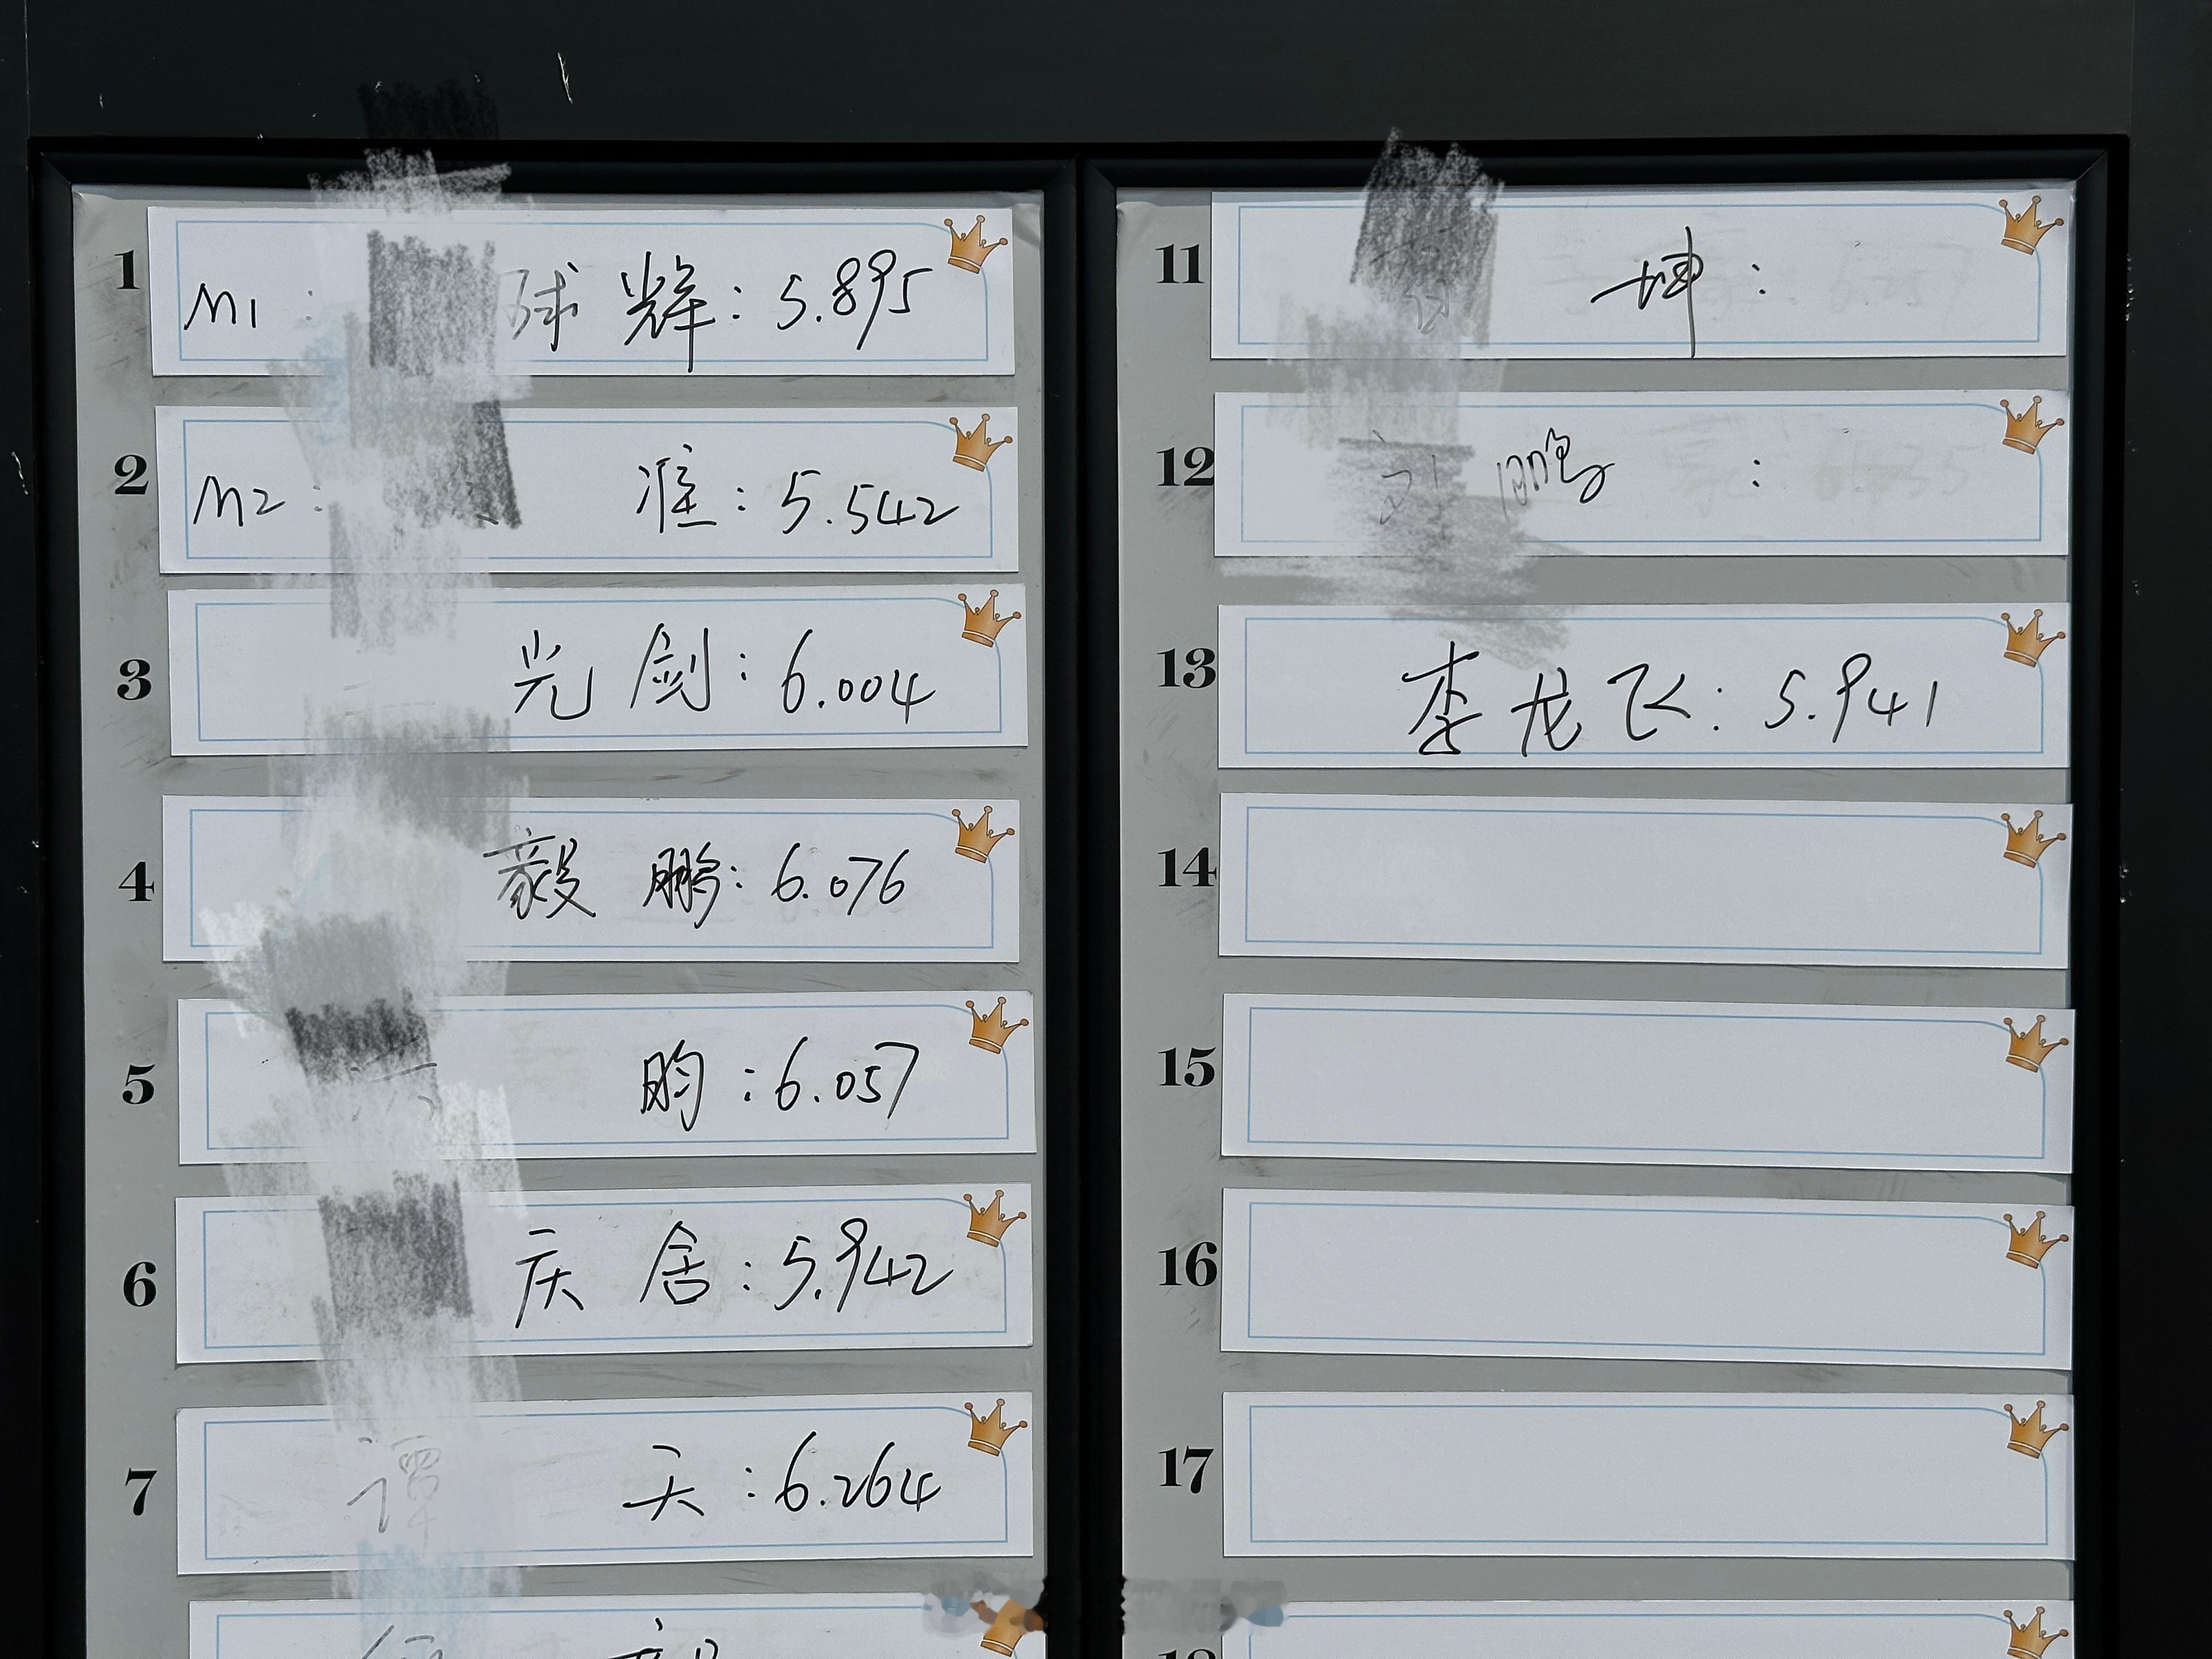 1 M1: 球辉:5.895
2 M2: 准:5.542
3 光剑:6.004
4 毅鹏:6.076
5 昀:6.057
6 庆舍:5.942
7 谭 天:6.264
11 坤:
12 刘鹏:
13 李龙飞:5.941
14
15
16
17